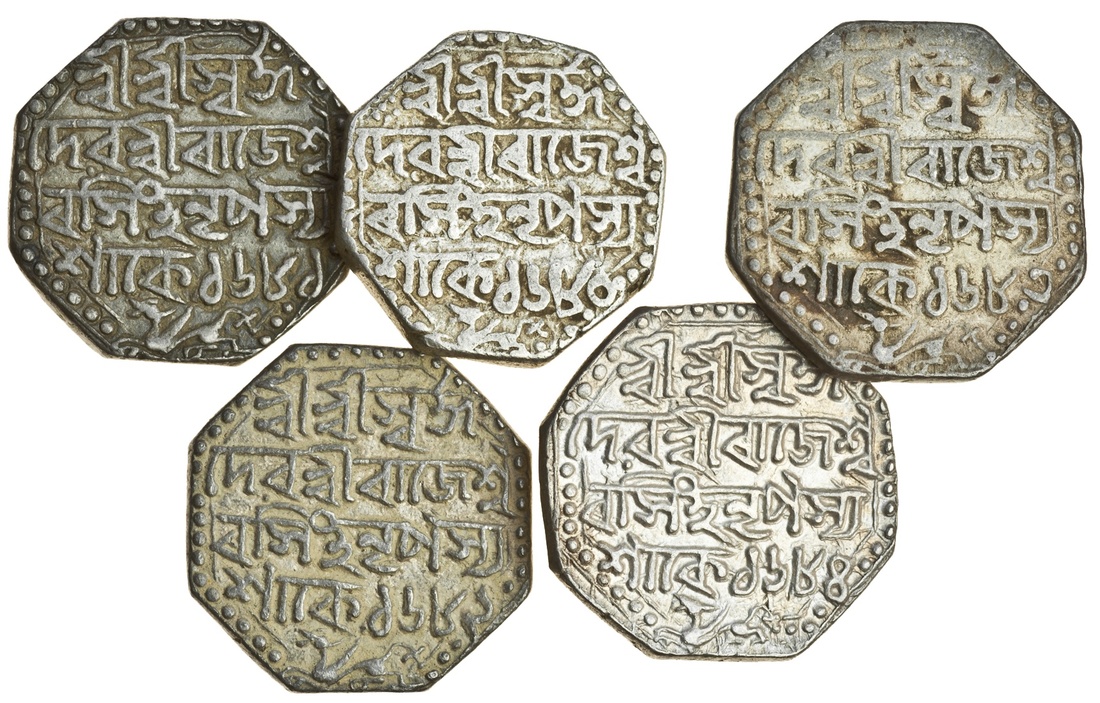 শ্রীশ্রীস্বর্গ
দেবশ্রীৰাজেশ্ব
ৰসিংহনৃপস্য
শাকে১৬৮১
শ্রীশ্রীস্বর্গ
দেবশ্রীৰাজেশ্ব
ৰসিংহনৃপস্য
শাকে১৬৮০
শ্রীশ্রীস্বর্গ
দেবশ্রীৰাজেশ্ব
ৰসিংহনৃপস্য
শাকে১৬৮৩
শ্রীশ্রীস্বর্গ
দেবশ্রীৰাজেশ্ব
ৰসিংহনৃপস্য
শাকে১৬৮২
শ্রীশ্রীস্বর্গ
দেবশ্রীৰাজেশ্ব
ৰসিংহনৃপস্য
শাকে১৬৮৪